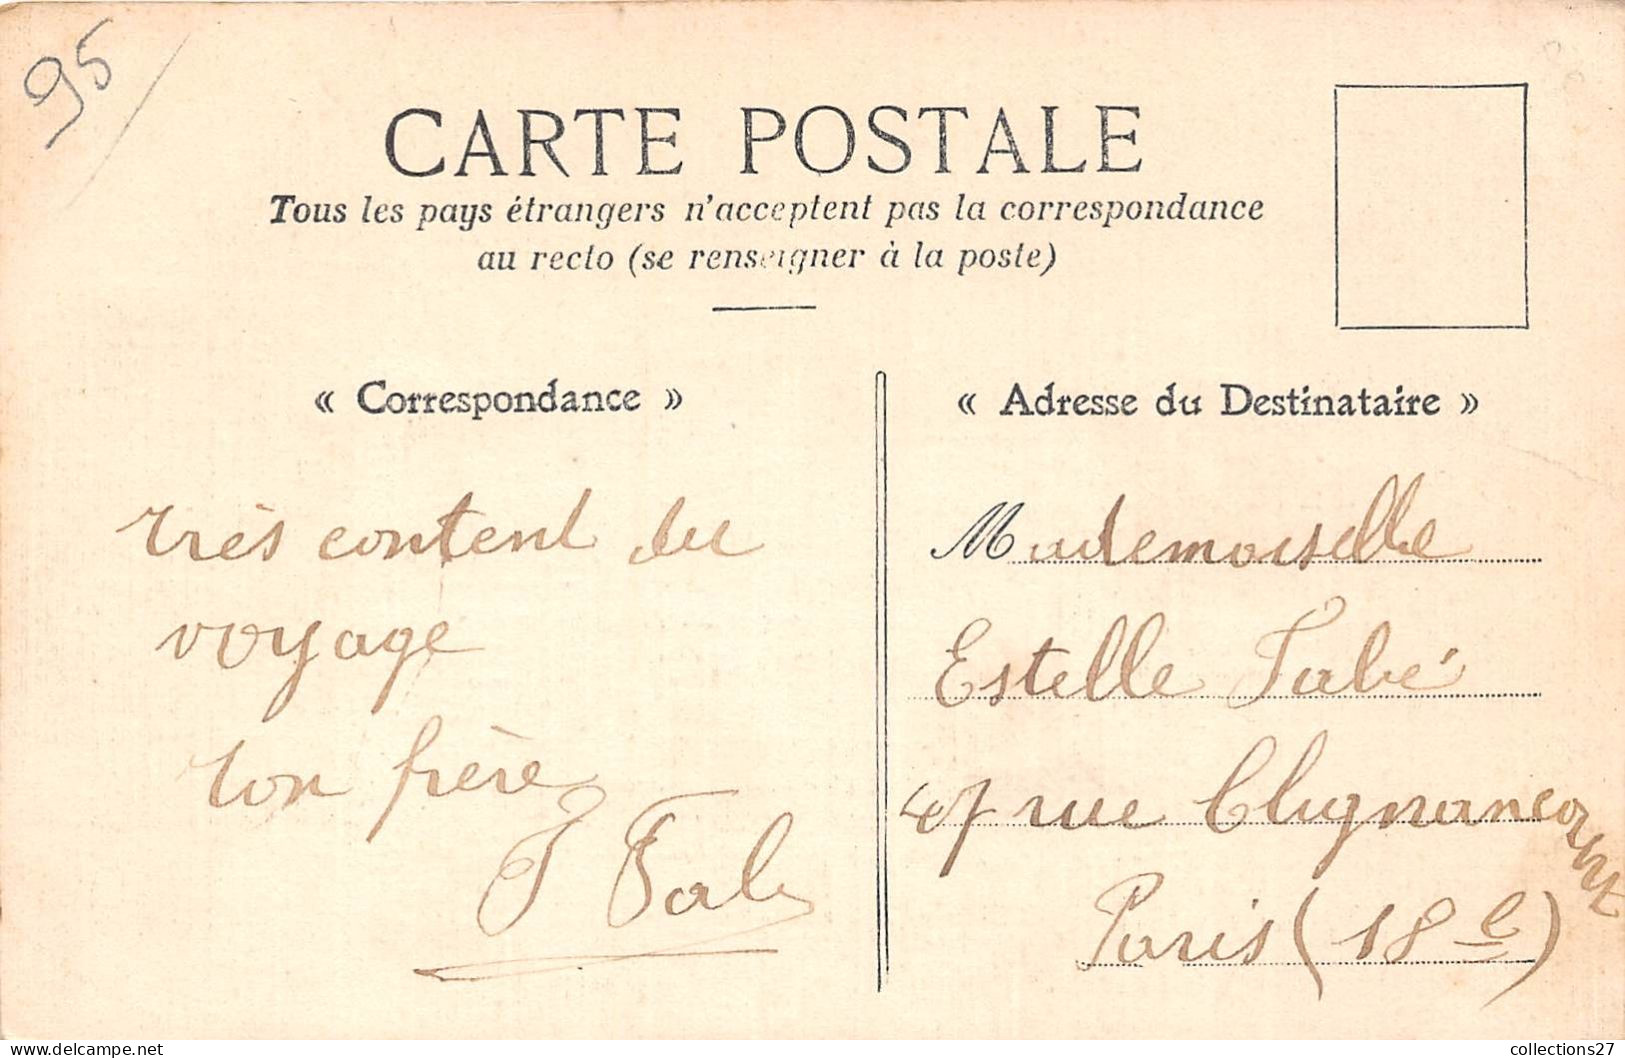 95
CARTE POSTALE
Tous les pays étrangers n'acceptent pas la correspondance
au recto (se renseigner à la poste)
« Correspondance »
très content du
voyage
ton frère
J Fab
« Adresse du Destinataire »
Mademoiselle
Estelle Fabé
rue Clignancourt
Paris (18e)
collections27